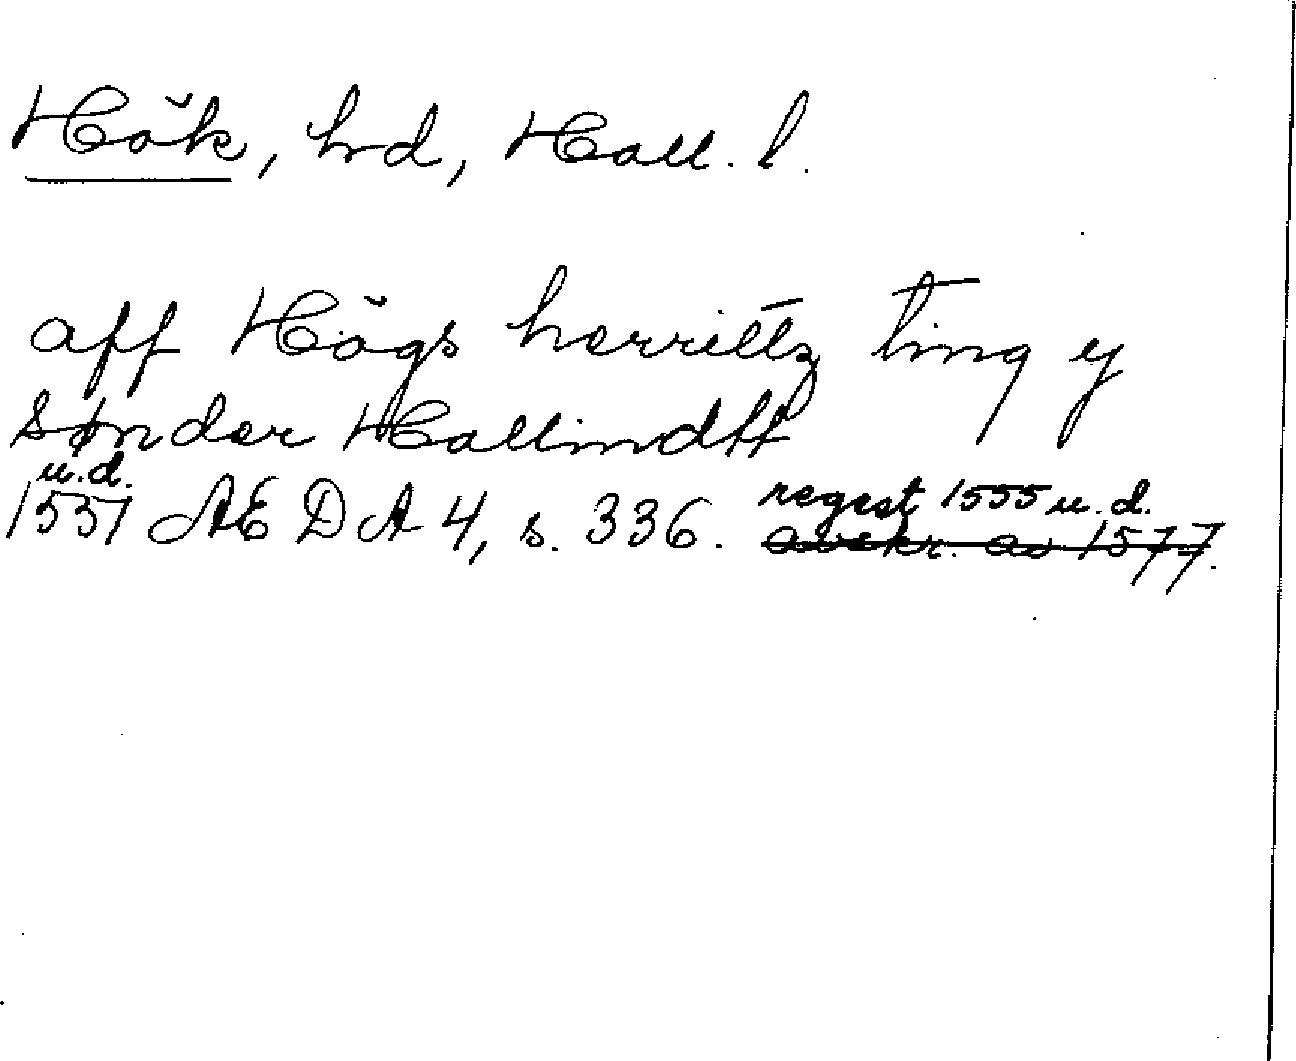 Hök, hrd, Hall. l.
aff Högs herrittz ting y
Sønder Hallindtt
u.d.
1537 ÆDA 4, s. 336. regest 1555 u.d.
avskr. av 1577.